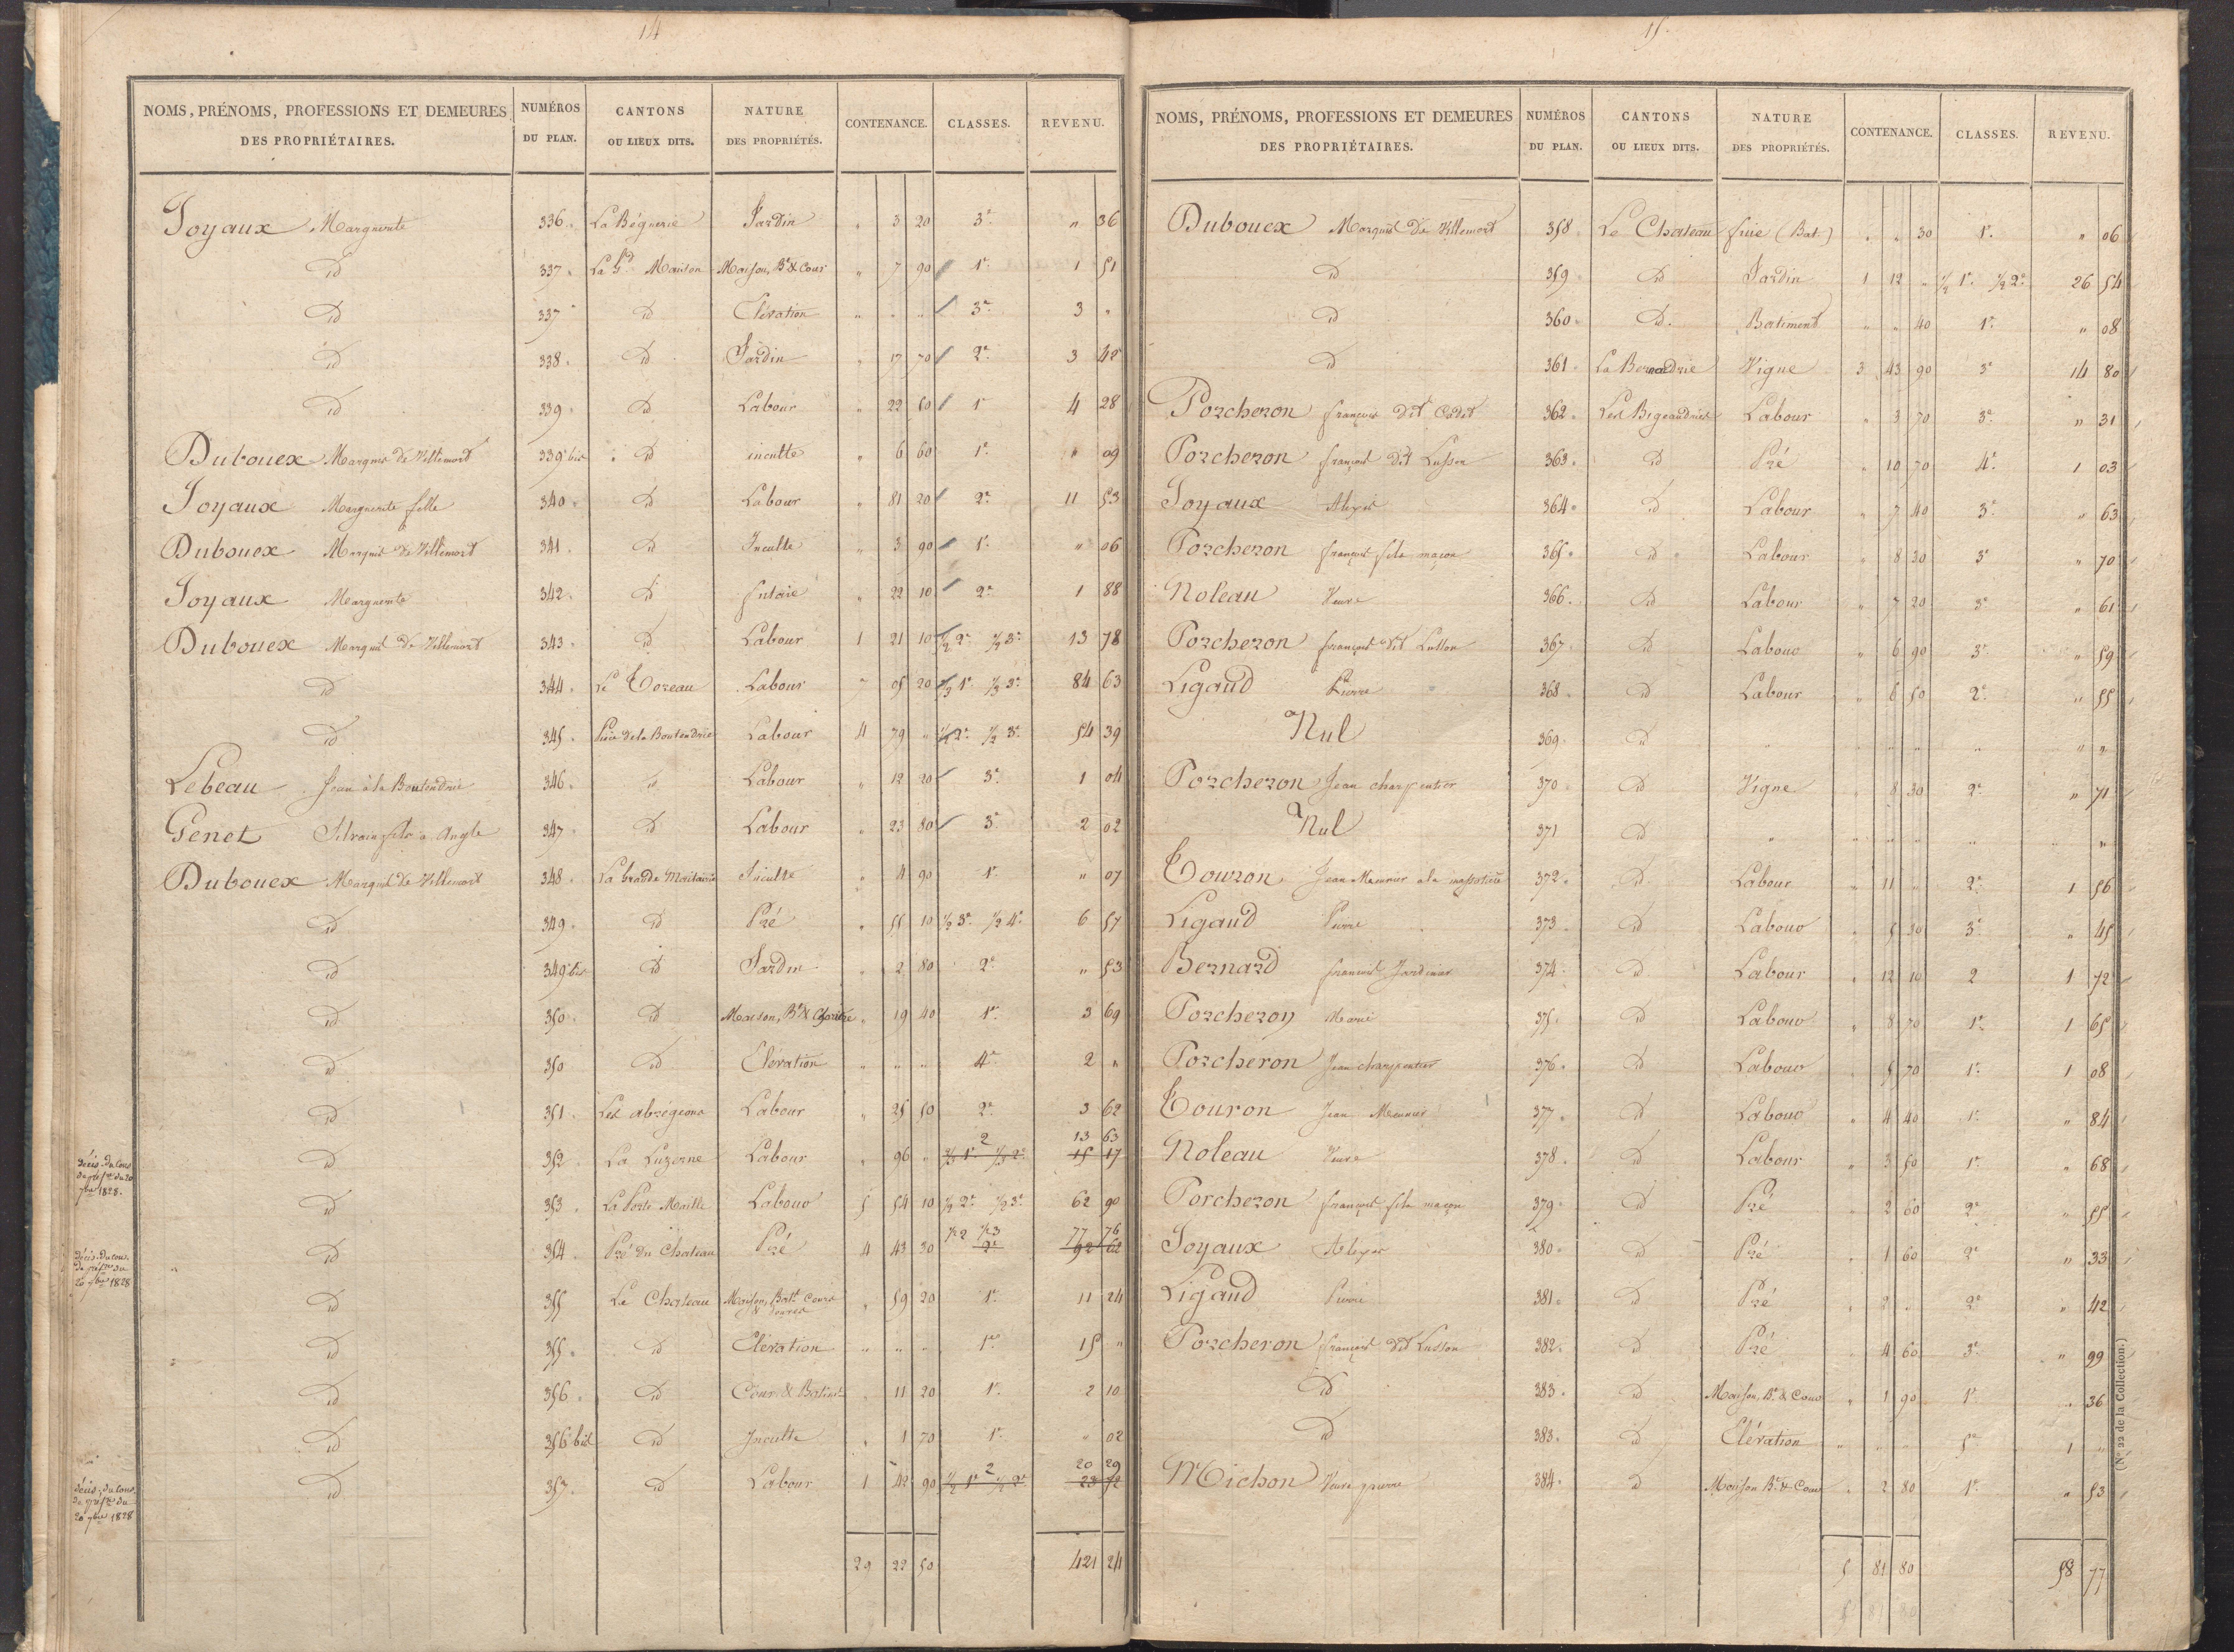 14
NOMS, PRÉNOMS, PROFESSIONS ET DEMEURES DES PROPRIÉTAIRES. NUMÉROS DU PLAN. CANTONS OU LIEUX DITS. NATURE DES PROPRIÉTÉS. CONTENANCE. CLASSES. REVENU.
Joyaux Marguerite 336 La Béguerie Jardin " 3 20 3e " 36
id 337 La Gde Maison Maison, Bt & Cour " 7 90 1e 1 51
id 337 id Elévation " " " 3e 3 "
id 338 id Jardin " 17 70 2e 3 42
id 339 id Labour " 22 50 1e 4 28
Dubouex Marquis de Villemort 339 bis id inculte " 6 60 1e " 09
Joyaux Marguerite fille 340 id Labour " 81 20 2e 11 53
Dubouex Marquis de Villemort 341 id Inculte " 3 90 1e " 06
Joyaux Marguerite 342 id futaie " 22 10 2e 1 88
Dubouex Marquis de Villemort 343 id Labour 1 21 10 1/2 2e 1/2 3e 13 78
id 344 Le Toreau Labour 05 20 1e 3e 84 63
id 345 de la Boutendrie Labour 4 79 " 1/2 2e 1/2 3e 54 39
Lebeau Jean à la Boutendrie 346 id Labour " 12 20 3e 1 04
Genet Silvain fils à Angle 347 id Labour " 23 80 3e 2 02
Dubouex Marquis de Villemort 348 La Grande Maitairie Inculte " 4 90 1e " 07
id 349 id Pré " 55 10 1/2 3e 1/2 4e 6 57
id 349 bis id Jardin " 2 80 2e " 53
id 350 id Maison, Bt & " 19 40 1e 3 69
id 350 id Elévation " " " 4e 2 "
id 351 Les abrégeons Labour " 25 50 2e 3 62
2 13 63
décis. du Cons. de préfre du 20 7bre 1828. id 352 La Luzerne Labour " 96 " 2/3 1e 1/3 2e 15 17
id 353 La Porte Maille Labour 5 54 10 1/2 2e 1/2 3e 62 90
1/2 2 1/2 3 77 76
décis. du cons. de préfre du 20 7bre 1828 id 354 Pré du Chateau Pré 4 43 30 2e 92 62
id 355 Le Chateau Maison, Batt Cours & Douves " 59 20 1e 11 24
id 355 id Elévation " " " 1e 15 "
id 356 id Cour & Batimt " 11 20 1e 2 10
id 356 bis id Inculte " 1 70 1e " 02
2 20 29
décis. du cons. de préfre du 20 7bre 1828 id 357 id Labour 1 42 90 1/2 1e 1/2 2e 23 72
29 22 50 421 24
15.
NOMS, PRÉNOMS, PROFESSIONS ET DEMEURES DES PROPRIÉTAIRES. NUMÉROS DU PLAN. CANTONS OU LIEUX DITS. NATURE DES PROPRIÉTÉS. CONTENANCE. CLASSES. REVENU.
Dubouex Marquis de Villemort 358 Le Chateau fuie (Bat.) " " 30 1e " 06
id 359 id Jardin 1 12 " 1/2 1e 1/2 2e 26 54
id 360 id Batiment " " 40 1e " 08
id 361 Vigne 3 43 90 3e 14 80
Porcheron françois dit Cadet 362 Les Bigeaudries Labour " 3 70 3e " 31
Porcheron françois dit Lusson 363 id Pré " 10 70 4e 1 03
Joyaux Alexis 364 id Labour " 7 40 3e " 63
Porcheron françois fils maçon 365 id Labour " 8 30 3e " 70
Noleau Veuve 366 id Labour " 7 20 3e " 61
Porcheron françois dit Lusson 367 id Labour " 6 90 3e " 59
Ligaud Pierre 368 id Labour " 6 50 2e " 55
Nul 369 id " " " " " " "
Porcheron Jean charpentier 370 id Vigne " 8 30 2e " 71
Nul 371 id " " " " " " "
Touron Jean Meunier a la 372 id Labour " 11 " 2e 1 56
Ligaud Pierre 373 id Labour " 5 30 3e " 45
Bernard francois Jardinier 374 id Labour " 12 10 2 1 72
Porcheron Marie 375 id Labour " 8 70 1e 1 65
Porcheron Jean charpentier 376 id Labour " 5 70 1e 1 08
Touron Jean Meunier 377 id Labour " 4 40 1e " 84
Noleau Veuve 378 id Labour " 3 50 1e " 68
Porcheron françois fils maçon 379 id Pré " 2 60 2e " 55
Joyaux Alexis 380 id Pré " 1 60 2e " 33
Ligaud Pierre 381 id Pré " 2 " 2e " 42
Porcheron françois dit Lusson 382 id Pré " 4 60 3e " 99
id 383 id Maison, Bt & Cour " 1 90 1e " 36
id 383 id Elévation " " " 5e 1 "
Michon Veuve pierre 384 id Maison Bt & Cour " 2 80 1e " 53
5 81 80 58 77
5 81 80
(No 22 de la Collection.)